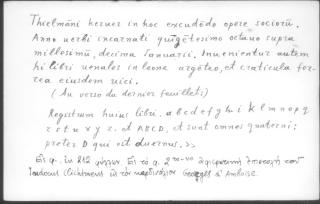 Thielmāni keruer in hoc excudēdo opere sociorū.
Anno verbi incarnati quīgētesimo octavo supra
millesimū, decima Ianuarii. Invenientur autem
hi libri venales in leone argēteo, et craticula fer-
rea eiusdem vici.
(Au verso du dernier feuillet:)
Registrum huius libri. a b c d e f g h i k l m n o p q
r s t u x y z. et ABCD. et sunt omnes quaterni;
preter D qui est duernus. >>
Εἰς φ. ἐκ 212 φύλλων. Εἰς τὸ φ. 2ᵒⁿ⁻ᵛᵒ ἀφιερωτικὴ ἐπιστολὴ τοῦ
Iudocus Clichtoueus εἰς τὸν καρδινάλιον Georges d'Amboise.